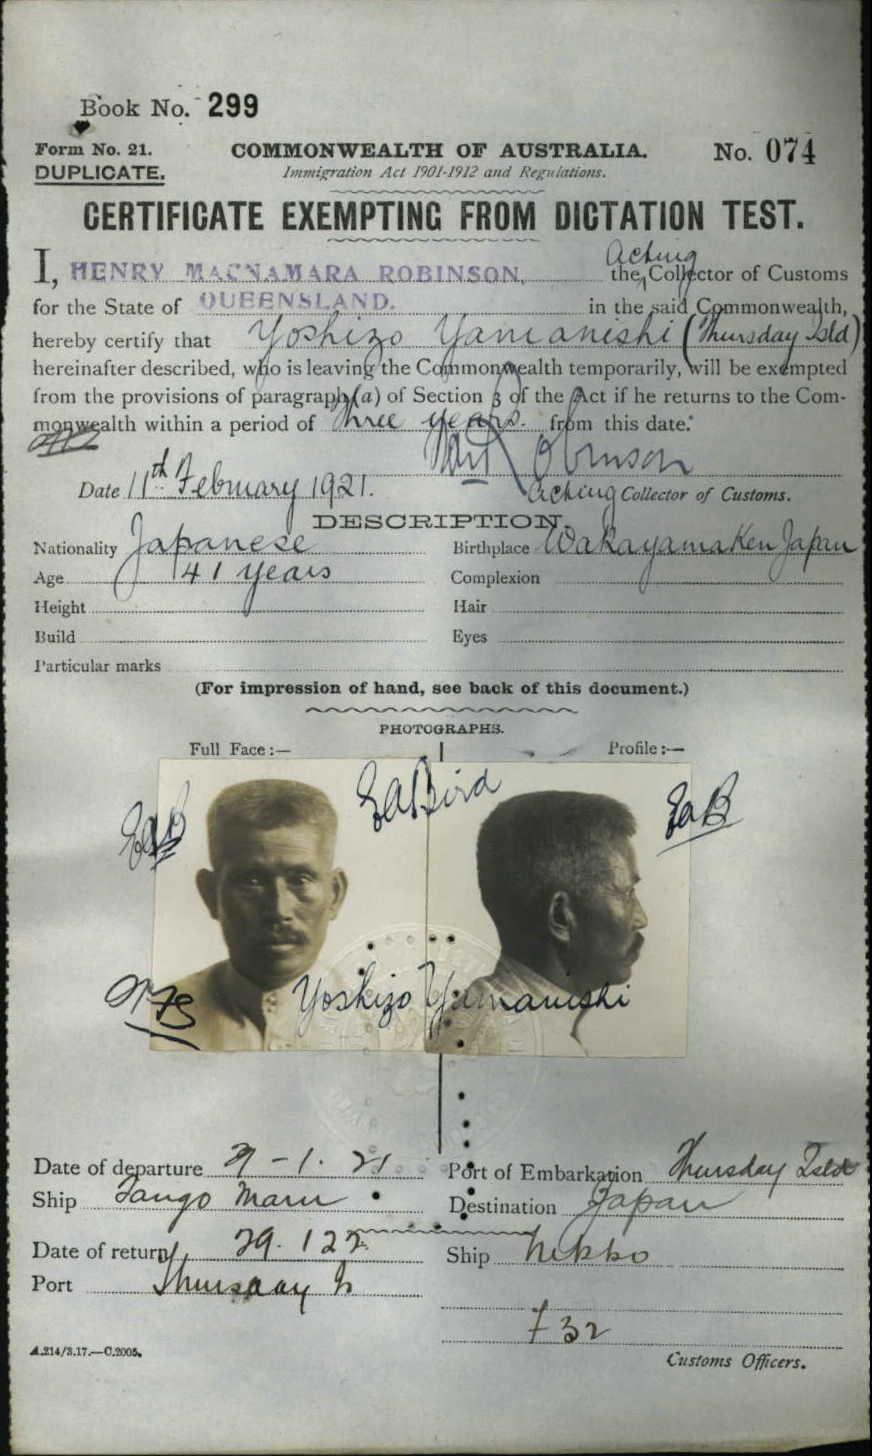 Book No. 299
Form No. 21.
COMMONWEALTH OF AUSTRALIA.
No. 074
DUPLICATE.
Immigration Act 1901-1912 and Regulations.
CERTIFICATE EXEMPTING FROM DICTATION TEST.
Acting
I, HENRY MACNAMARA ROBINSON, the Collector of Customs
for the State of QUEENSLAND. in the said Commonwealth,
hereby certify that Yoshizo Yamanishi (Thursday Isld)
hereinafter described, who is leaving the Commonwealth temporarily, will be exempted
from the provisions of paragraph (a) of Section 3 of the Act if he returns to the Com-
monwealth within a period of Three years. from this date.
Robinson
Date 11th February 1921. Acting Collector of Customs.
DESCRIPTION.
Nationality Japanese Birthplace Wakayama Ken Japan
Age 41 years Complexion
Height Hair
Build Eyes
Particular marks
(For impression of hand, see back of this document.)
PHOTOGRAPHS.
Full Face :— Profile :—
EaB EaBird EaB
Yoshizo Yamanishi
Date of departure -1. 21 Port of Embarkation Thursday Isld
Ship Tango Maru Destination Japan
Date of return 29. 1 22 Ship Nikko
Port Thursday Is
732
A.214/3.17.—C.2005.
Customs Officers.